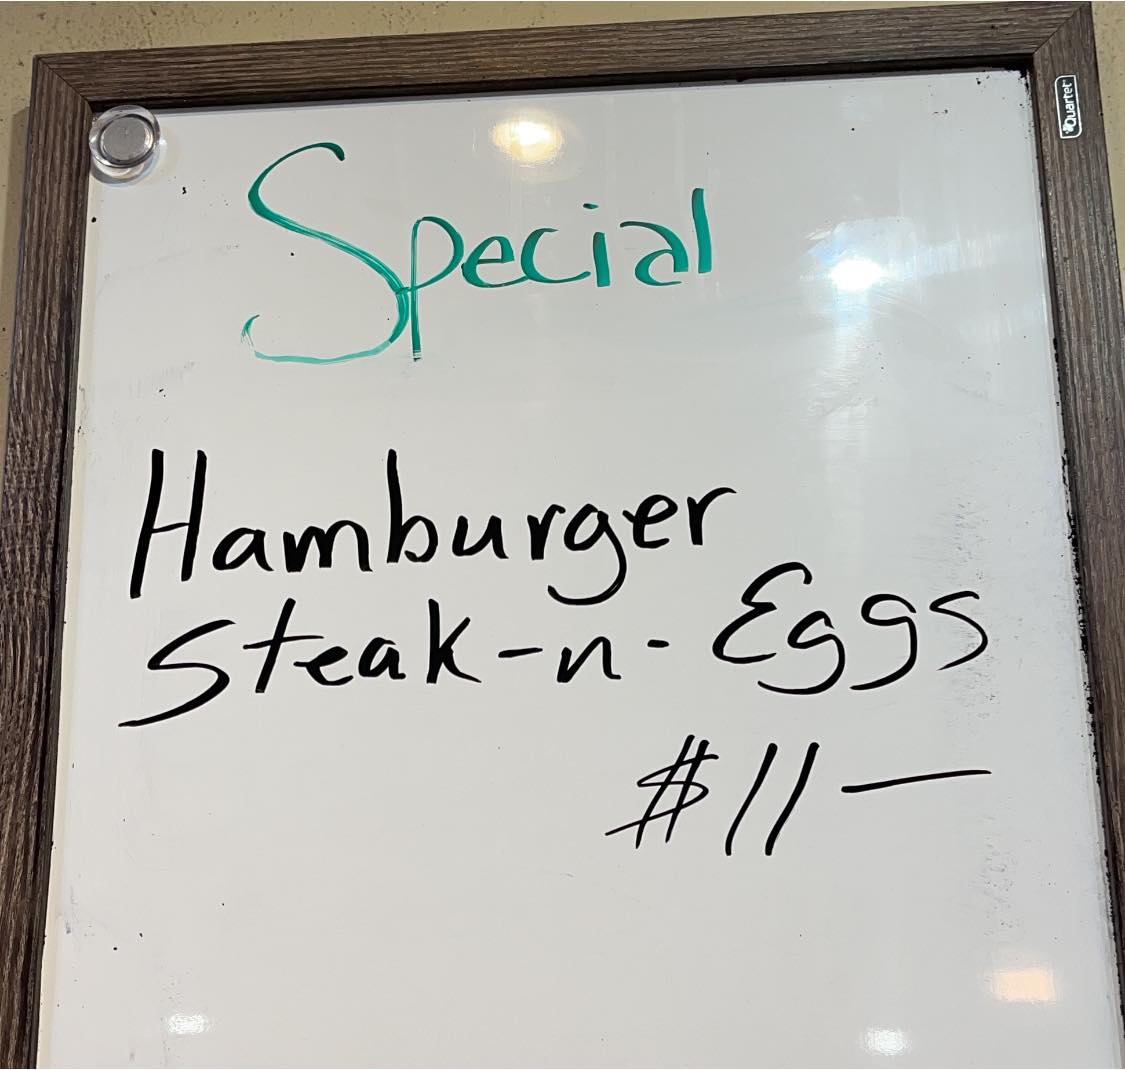 Quartet
Special
Hamburger
Steak-n-Eggs
$11—